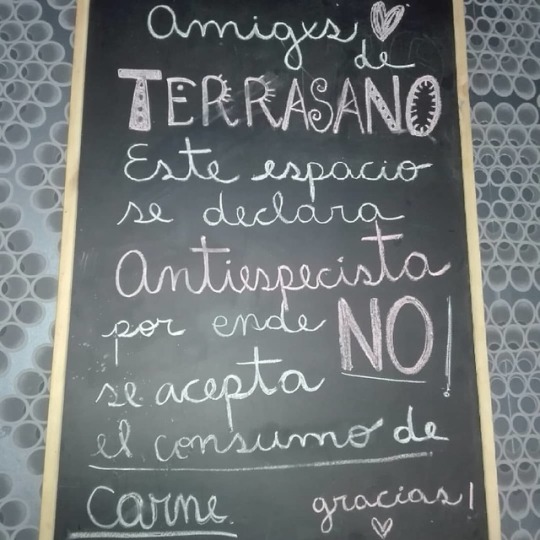 Amigxs
de
TERRASANO
Este espacio
se declara
Antiespecista
por ende NO!
se acepta
el consumo de
carne.
gracias!